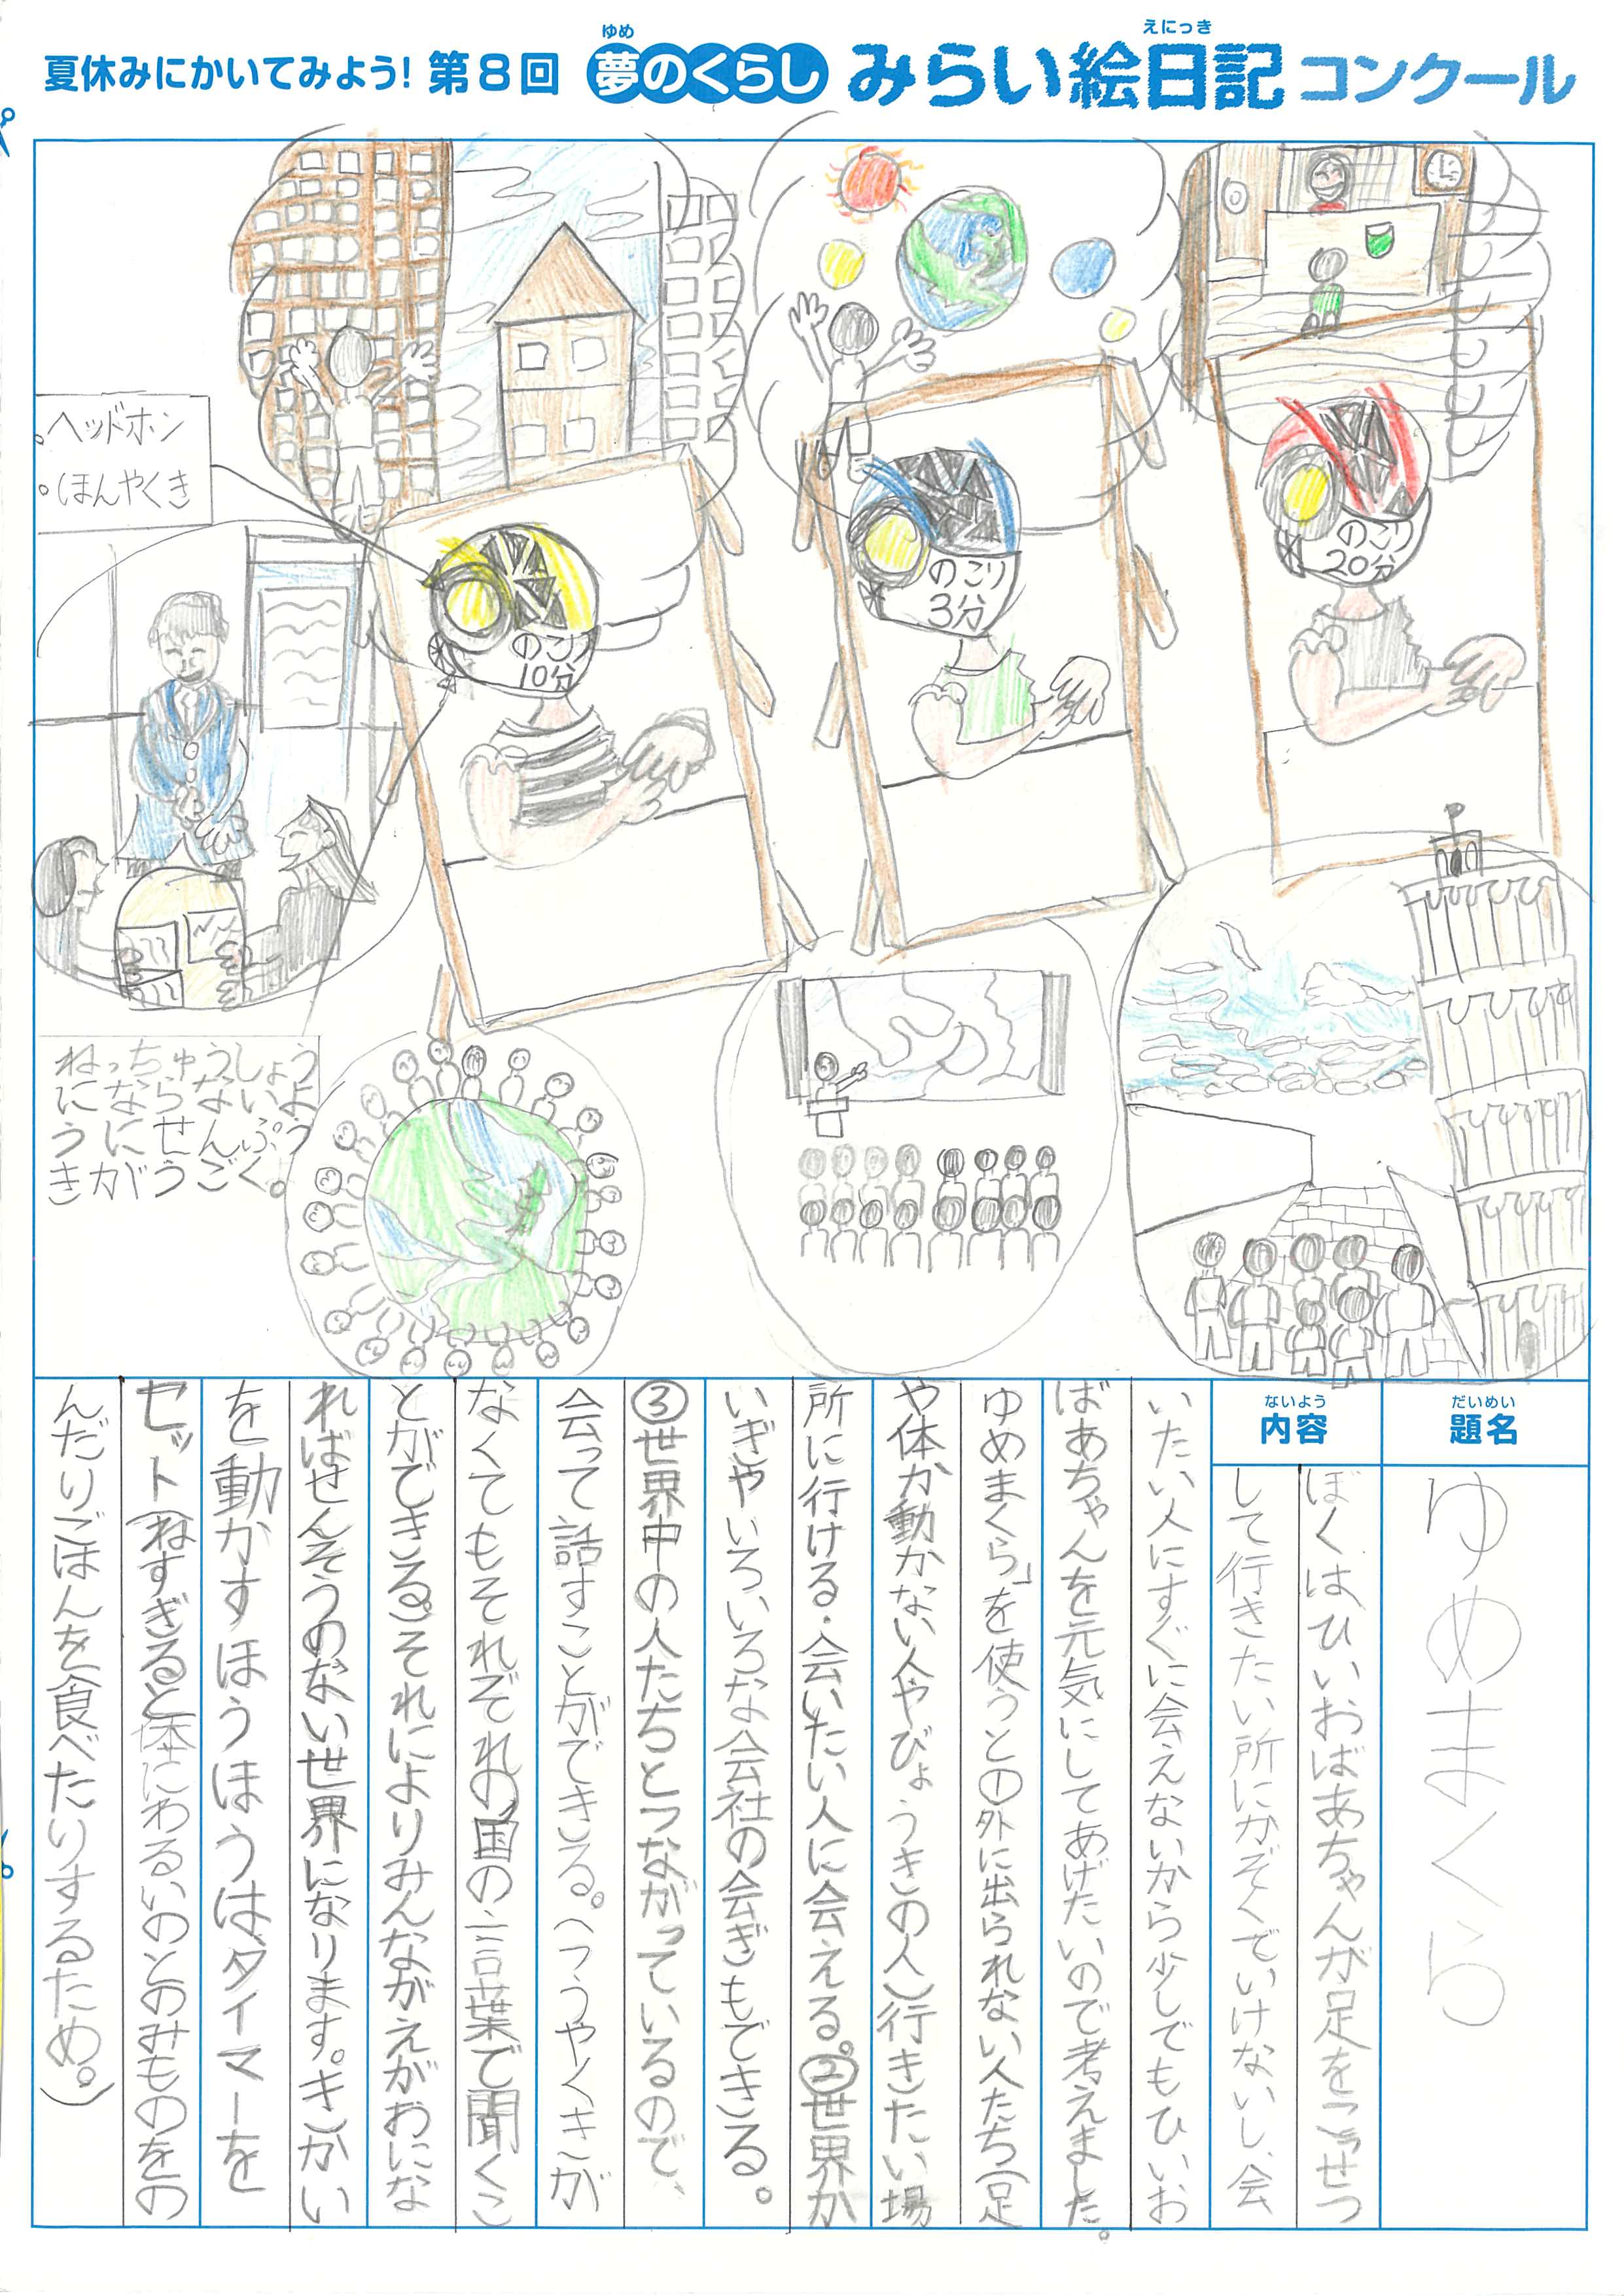 夏休みにかいてみよう! 第8回 夢のくらし みらい絵日記 コンクール
ゆめ
えにっき
ヘッドホン
ほんやくき
のこり
10分
のこり
3分
のこり
20分
ねっちゅうしょう
にならないよ
うにせんぷう
きがうごく。
だいめい
題名
ゆめまくら
ないよう
内容
ぼくはひいおばあちゃんが足をこっせつ
して行きたい所にかぞくでいけないし、会
いたい人にすぐに会えないから少しでもひいお
ばあちゃんを元気にしてあげたいので考えました。
ゆめまくら」を使うと①外に出られない人たち(足
や体か動かない人やびょうきの人)行きたい場
所に行ける・会いたい人に会える。②世界か
いぎやいろいろな会社の会ぎもできる。
③世界中の人たちとつながっているので、
会って話すことができる。(つうやくきが
なくてもそれぞれの国の言葉で聞くこ
とができる。)それによりみんながえがおにな
ればせんそうのない世界になります。きかい
を動かすほうほうは、タイマーを
セット(ねすぎると体にわるいのとのみものをの
んだりごはんを食べたりするため。)